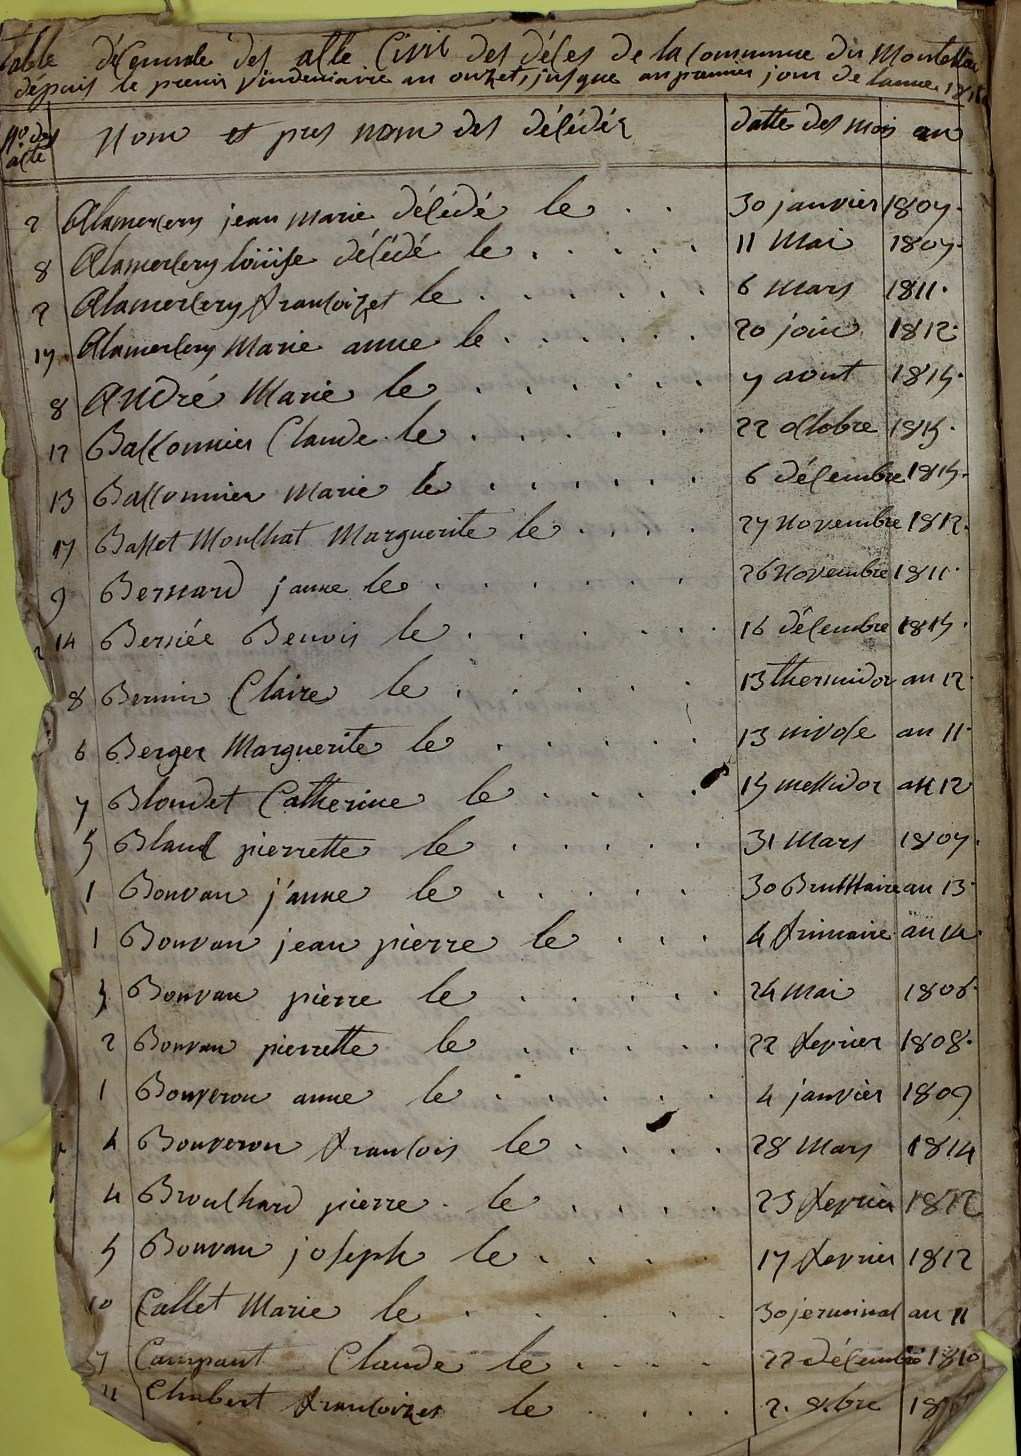 table décennale des atte Civil des déces de la Commune du
dépuis le premir vindemiaire an onze, jusque au premier jour de lannee
No. des acte Nom et pres nom des décédés datte des mois an
2 Alamerlery jean Marie décédé le 30 janvier 1807.
8 Alamerlery loüise décédé le 11 Mai 1807.
2 Alamerlery francoizet le 6 Mars 1811.
17 Alamerlery Marie anne le 20 join 1812.
8 André Marie le 7 aout 1815.
12 Balconnier Claude le 22 octobre 1815.
13 Balconnier Marie le 6 décembre 1815.
17 Basset Moulhat Marguerite le 27 Novembre 1812.
9 Bernard janne le 26 Novembre 1811.
14 Bersiée Benois le 16 décembre 1815.
8 Bernin Claire le 13 thermidor an 12.
6 Berger Marguerite le 13 nivose an 11.
7 Blondet Catherine le 15 messidor an 12
5 Bland pierrette le 31 Mars 1807.
1 Bonvan j'anne le 30 Brumaire an 13.
1 Bonvan jean pierre le 4 frimaire an 14
5 Bonvan pierre le 24 Mai 1806.
2 Bonvan pierrette le 22 fevrier 1808.
1 Bonveron anne le 4 janvier 1809
4 Bonveron francois le 28 Mars 1814
4 Broulhard pierre le 23 fevrier 1812
5 Bonvan joseph le 17 fevrier 1812
10 Callet Marie le 30 jerminal an 11
Campant Claude le 22 décembre 1810
11 Chubert francoizet le 2. 8bre